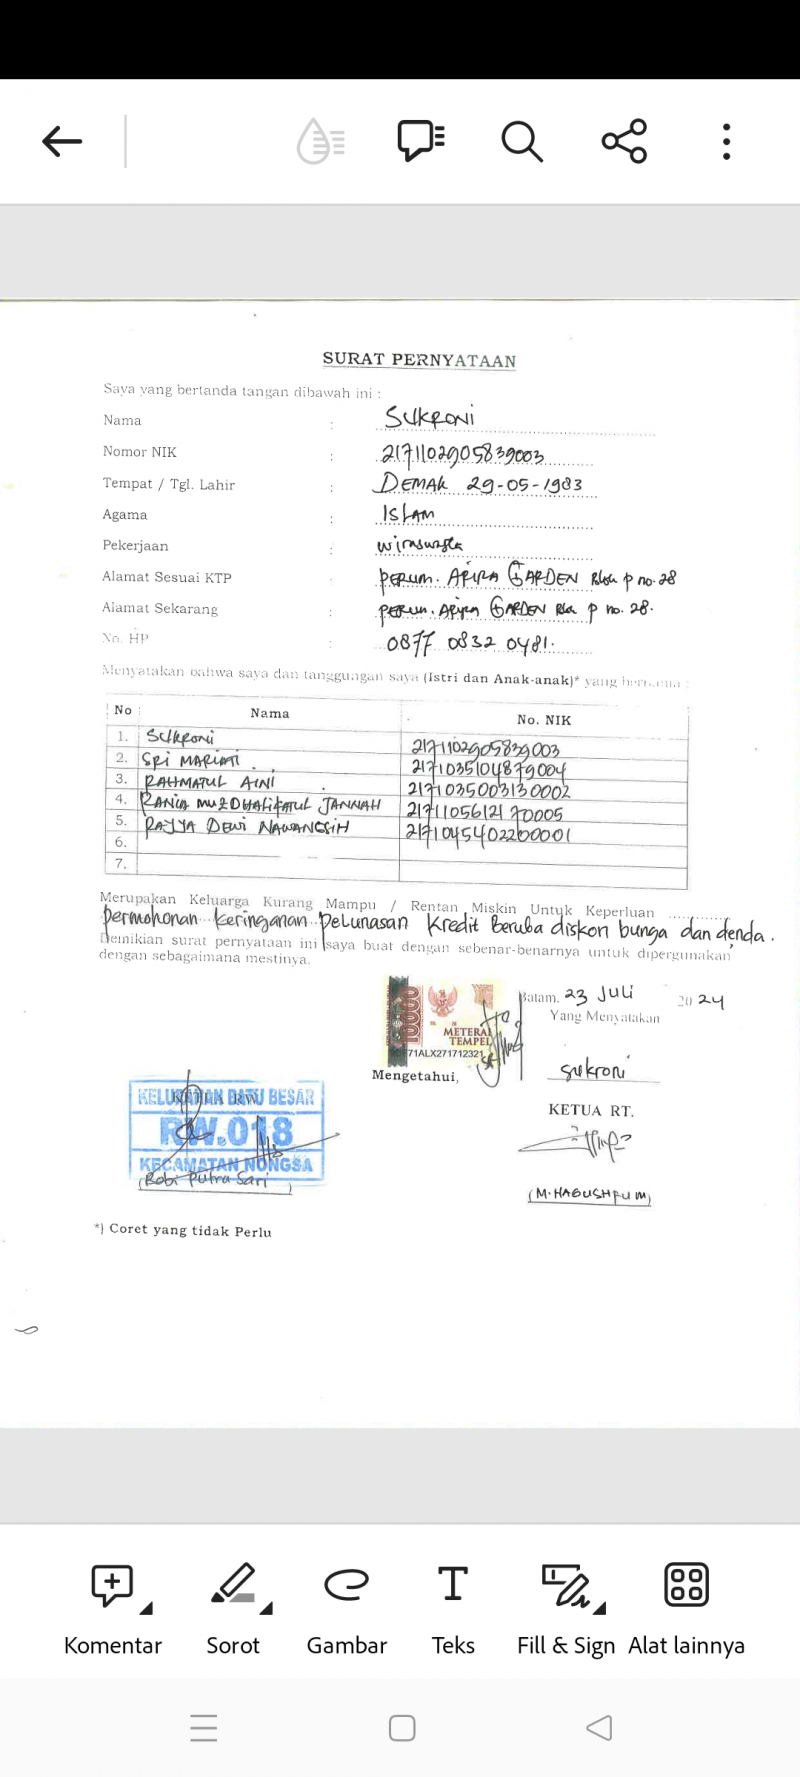 SURAT PERNYATAAN
Saya yang bertanda tangan dibawah ini :
Nama : Sukroni
Nomor NIK : 2171102905839003
Tempat / Tgl. Lahir : DEMAK 29-05-1983
Agama : ISLAM
Pekerjaan : wiraswasta
Alamat Sesuai KTP : perum. ARIRA GARDEN Blok p no. 28
Alamat Sekarang : perum. GARDEN p no. 28.
No. HP : 0877 0832 0481.
Menyatakan bahwa saya dan tanggungan saya (Istri dan Anak-anak)* yang bernama :
No Nama No. NIK
1. Sukroni 2171102905839003
2. SRI MARIATI 2171035104879004
3. RAHMATUL AINI 2171035003130002
4. RANIA JANNAH 2171105612170005
5. DEWI NAWANGSIH 2171045402200001
6.
7.
Merupakan Keluarga Kurang Mampu / Rentan Miskin Untuk Keperluan ............
permohonan keringanan pelunasan kredit Beruba diskon bunga dan denda.
Demikian surat pernyataan ini saya buat dengan sebenar-benarnya untuk dipergunakan
dengan sebagaimana mestinya.
Batam, 23 Juli 2024
Yang Menyatakan
10000
METERAI
TEMPEL
71ALX271712321
Mengetahui,
Sukroni
KETUA RW
KELURAHAN BATU BESAR
RW.018
KECAMATAN NONGSA
(Robi Putra Sari)
KETUA RT.
*) Coret yang tidak Perlu
Komentar
Sorot
Gambar
T
Teks
Fill & Sign
Alat lainnya